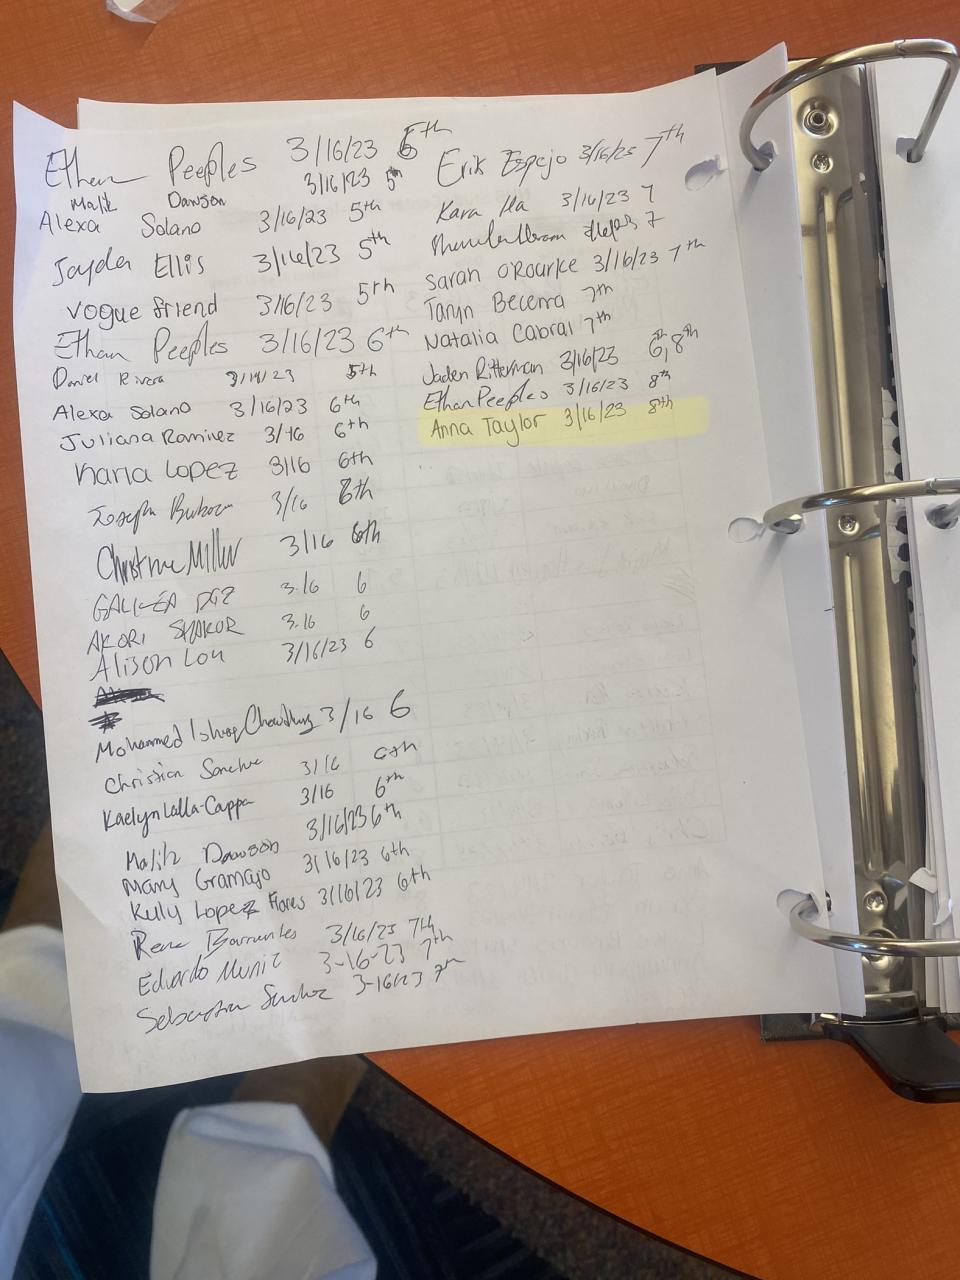 Ethan Peeples 3/16/23 5th
Malik Dawson 3/16/23 5th
Alexa Solano 3/16/23 5th
Jayden Ellis 3/16/23 5th
Vogue friend 3/16/23 5th
Ethan Peeples 3/16/23 6th
Daniel Rivera 3/14/23 5th
Alexa Solano 3/16/23 6th
Juliana Ramirez 3/16 6th
Karla Lopez 316 6th
Joseph 3/16 6th
Christine Miller 3/16 6th
3.16 6
AKORI SHAKOR 3.16 6
Alison Lou 3/16/23 6
Mohammed Chowdhury 3/16 6
Christian Sanchez 3/16 6th
Kaelyn Lalla-Cappa 3/16 6th
Malik Dawson 3/16/23 6th
Mary Gramajo 3/16/23 6th
Kelly Lopez Flores 3/16/23 6th
Rene Barrantes 3/16/23 7th
Edardo Muniz 3-16-23 7th
Sebastian Sanchez 3-16/23 7th
Erik Espejo 3/16/23 7th
Kara 3/16/23 7
7
Sarah O'Rourke 3/16/23 7th
Taryn Becerra 7th
Natalia Cabral 7th
Jaden Ritterman 3/16/23 6th, 8th
Ethan Peeples 3/16/23 8th
Anna Taylor 3/16/23 8th